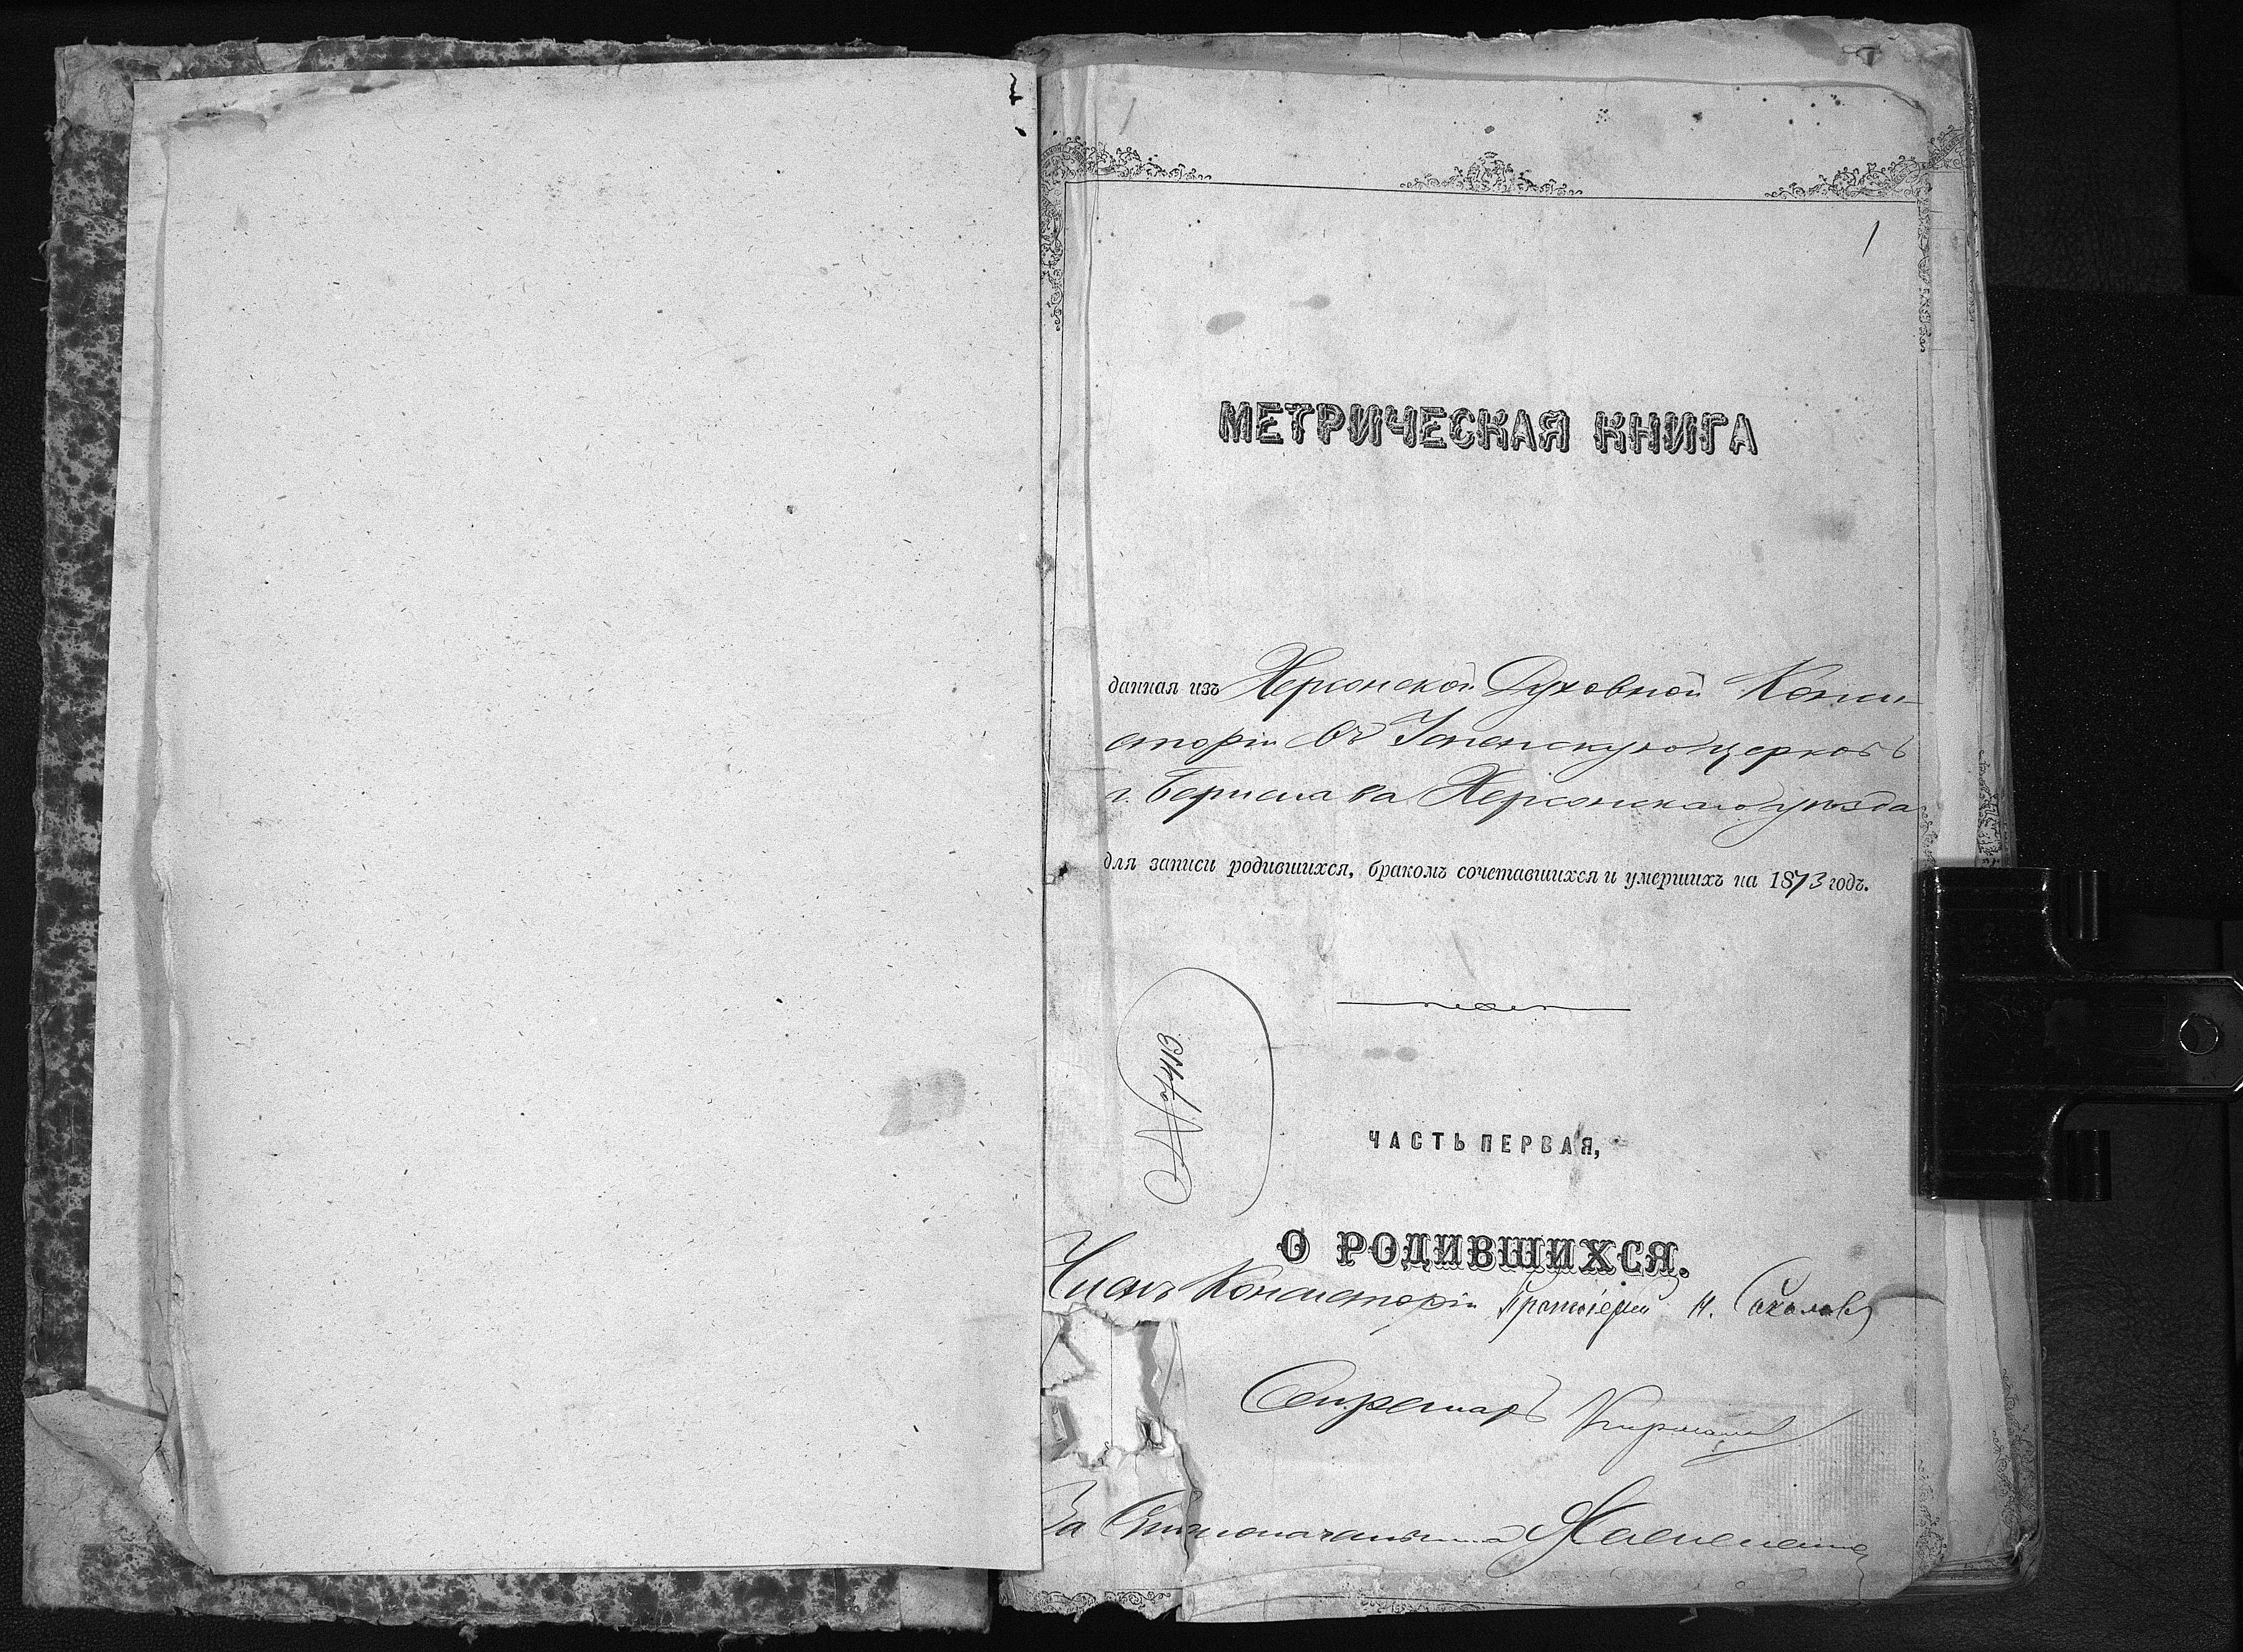 1
МЕТРИЧЕСКАЯ КНИГА
данная изъ Херсонской Духовной Конси-
сторіи въ Успенскую церковь
г. Берислава Херсонскаго уѣзда
для записи родившихся, бракомъ сочетавшихся и умершихъ на 1873 годъ.
ЧАСТЬ ПЕРВАЯ,
О РОДИВШИХСЯ.
Членъ Консисторіи Протоіерей Н. Соколовъ
Секретарь
За Столоначальника